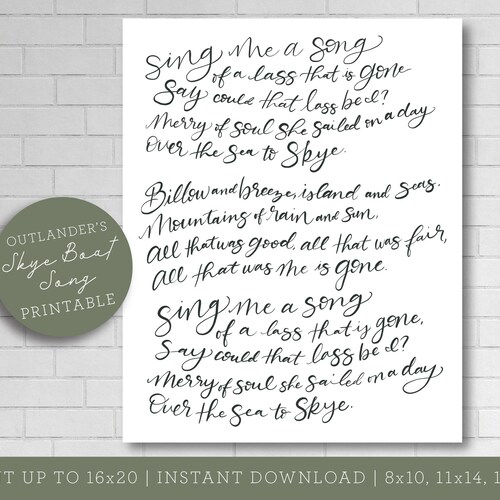 Sing me a song
of a lass that is gone
Say could that lass be I?
Merry of soul she sailed on a day
Over the sea to Skye.
Billow and breeze, island and seas.
Mountains of rain and sun,
All that was good, all that was fair,
All that was me is gone.
Sing me a song
of a lass that is gone,
Say could that lass be I?
Merry of soul she sailed on a day
Over the sea to Skye.
OUTLANDER'S
Skye Boat
Song
PRINTABLE
UP TO 16x20 | INSTANT DOWNLOAD | 8x10, 11x14,